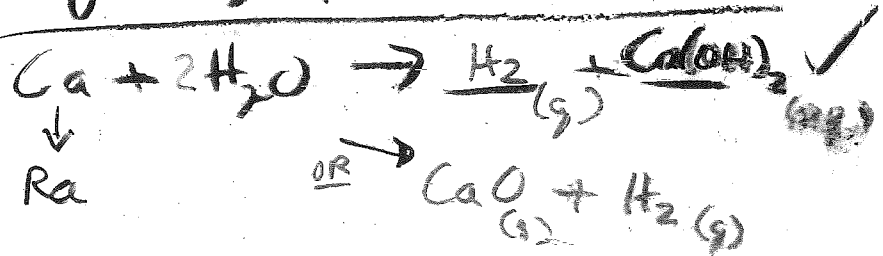 Ca + 2H₂O → H₂(g) + Ca(OH)₂(aq) ✓
↓
Ra OR → CaO(s) + H₂(g)